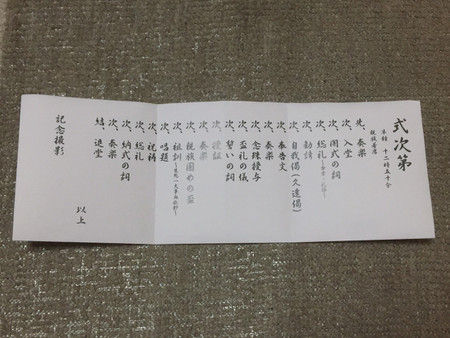 式次第
本鐘 十二時五十分
親族着席
先、奏楽
次、入堂
次、開式の詞
次、総礼
次、勧請
次、自我偈(久遠偈)
次、奉告文
次、奏楽
次、念珠授与
次、盃礼の儀
次、誓いの詞
次、授証
次、奏楽
次、親族固めの盃
次、祖訓
次、唱題
次、祝祷
次、総礼
次、納式の詞
次、奏楽
結、退堂
以上
記念撮影